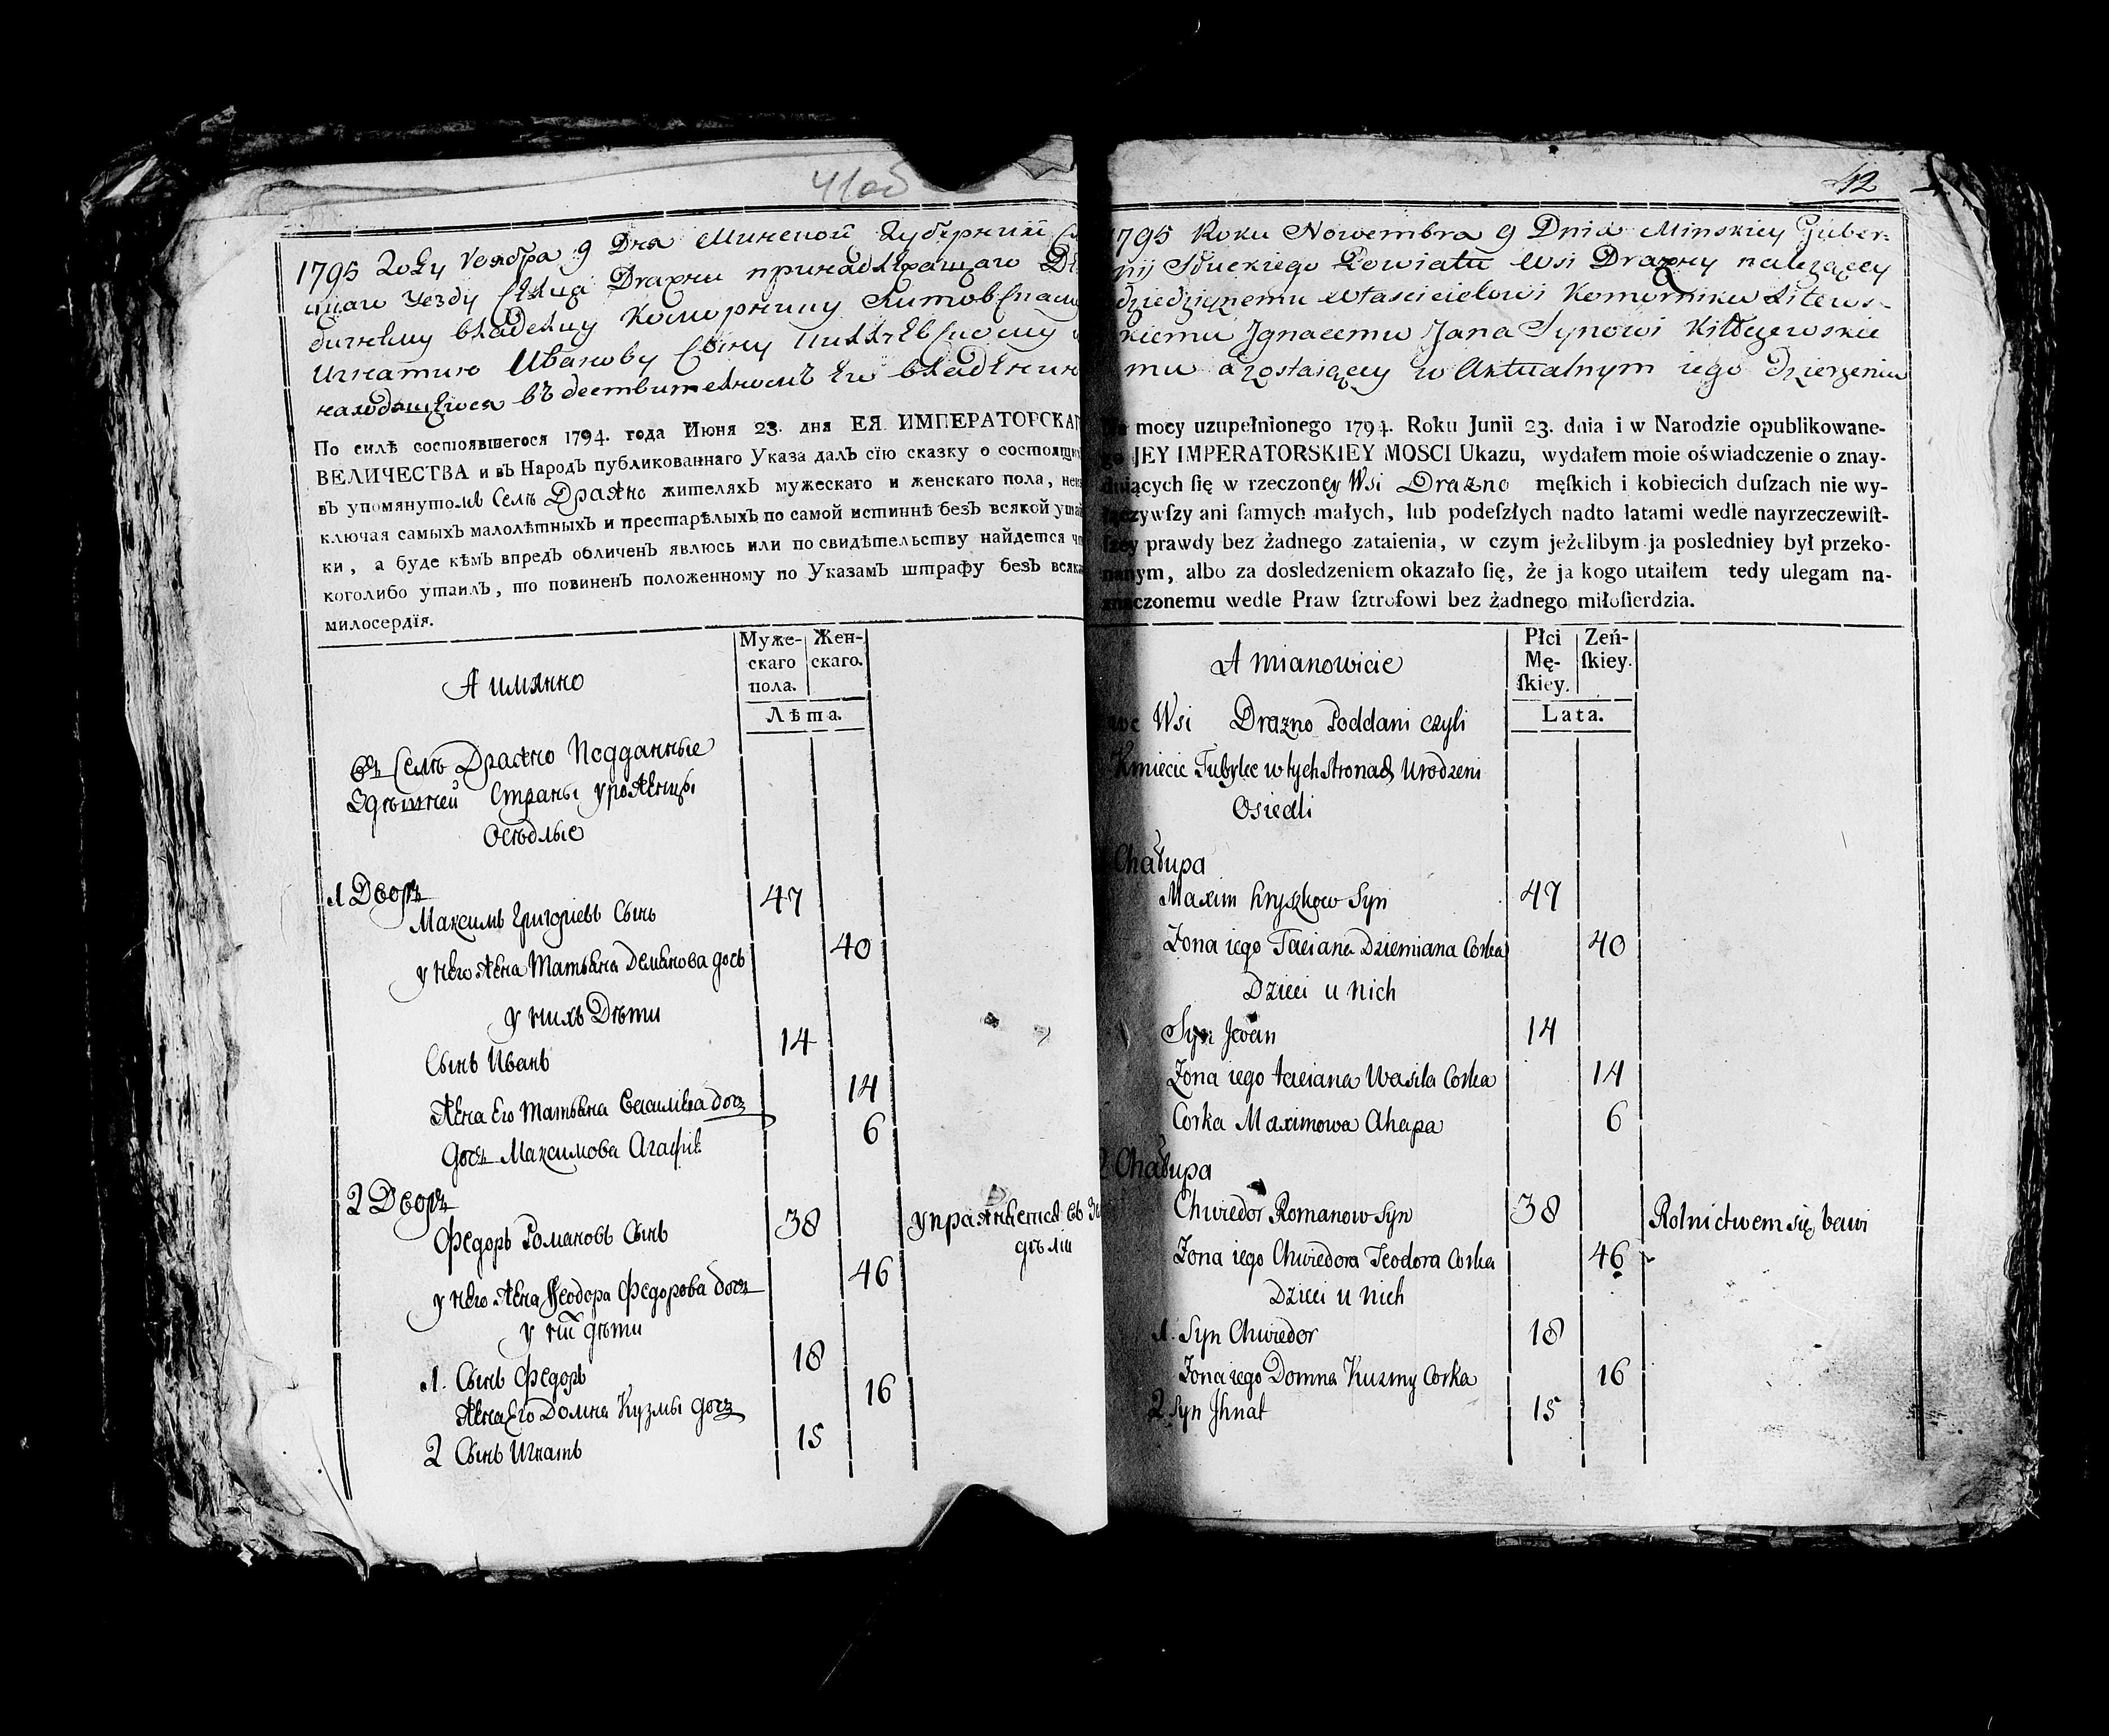 41об
1795 году Ноября 9 Дня Минской Губернии
цкаго уезду села Дражни принадлежащаго
дичному владельцу Коморнику Литовскому
Игнатию Иванову Сыну
находящегося въ действителномъ Его владении
По силѣ состоявшегося 1794. года Июня 23. дня ЕЯ ИМПЕРАТОРСКАГ
ВЕЛИЧЕСТВА и въ Народъ публикованнаго Указа далъ сїю сказку о состоящи
въ упомянутомъ Селѣ Дражно жителяхъ мужескаго и женскаго пола, неи
ключая самыхъ малолѣтныхъ и престарѣлыхъ по самой истиннѣ безъ всякой утай
ки, а буде кѣмъ впредъ обличенъ явлюсь или по свидѣтельству найдется чт
коголибо утаилъ, то повиненъ положенному по Указамъ штрафу безъ всяка
милосердїя.
А имянно
Муже- Жен-
скаго скаго.
пола.
Лѣта.
въ Селѣ Дражно Подданные
Здѣшней Страны уроженцы
Осѣдлые
1 Дворъ
Максимъ Григорievъ Сынъ 47
у него жена Татьяна Демянова дочь 40
у нихъ Дѣти
Сынъ Иванъ 14
жена Его Татьяна Василева дочъ 14
дочъ Максимова Агафия 6
2 Дворъ
Федоръ Романовъ Сынъ 38 упражняется въ
дѣлии
у него жена Феодора Федорова дочъ 46
у них дѣти
1. Сынъ Федоръ 18
жена Его Домна Кузмы дочъ 16
2 Сынъ Игнатъ 15
42
1795 Roku Nowembra 9 Dnia Minskiey Guber:
nij Słuckiego Powiatu Wsi Drażny należącey
dziedzicznemu właścicielowi Komornikowi Litews-
kiemu Jgnacemu Jana Synowi
mu a zostaiącey w Aktualnym iego dzierżeniu
mocy uzupełnionego 1794. Roku Junii 23. dnia i w Narodzie opublikowane-
go JEY IMPERATORSKIEY MOSCI Ukazu, wydałem moie oświadczenie o znay-
duiących ſię w rzeczoney Wsi Drazno męſkich i kobiecich duſzach nie wy-
łączywſzy ani ſamych małych, lub podeſzłych nadto latami wedle nayrzeczewiſt-
ſzey prawdy bez żadnego zataienia, w czym jeżelibym ja posledniey był przeko-
nanym, albo za dosledzeniem okazało ſię, że ja kogo utaiłem tedy ulegam na-
znaczonemu wedle Praw ſztrofowi bez żadnego miłoſierdzia.
A mianowicie
Płci Zeń-
Mę- ſkiey.
ſkiey.
Lata.
we Wsi Drazno Poddani czyli
Kmiecie Tubylce w tych stronach Urodzeni
Osiedli
Chałupa
Maxim Hryszkow Syn 47
Zona iego Taciana Dziemiana Corka 40
Dzieci u Nich
Syn Jwan 14
Zona iego taciana Wasila Corka 14
Corka Maximowa Ahapa 6
2 Chałupa
Chwiedor Romanow Syn 38 Rolnictwem się bawi
Zona iego Chwiedora Teodora Corka 46
Dzieci u Nich
1. Syn Chwiedor 18
Zona iego Domna Kuzmy Corka 16
2 Syn Jhnat 15